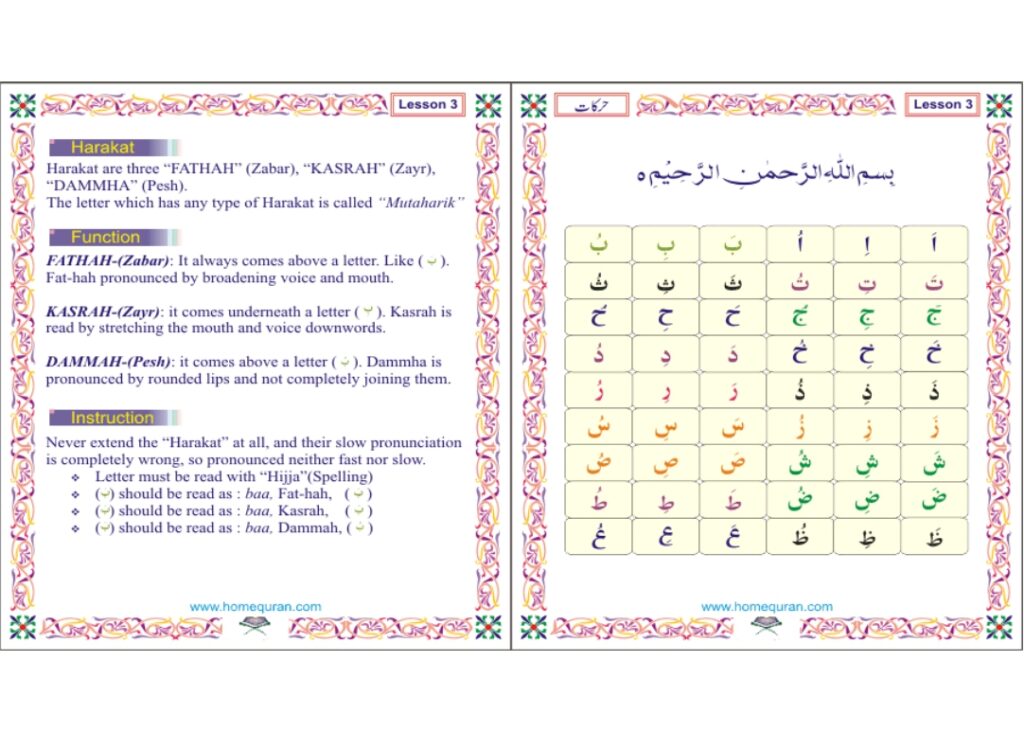 Lesson 3
Harakat
Harakat are three “FATHAH” (Zabar), “KASRAH” (Zayr),
“DAMMHA” (Pesh).
The letter which has any type of Harakat is called “Mutaharik”
Function
FATHAH-(Zabar): It always comes above a letter. Like ( ).
Fat-hah pronounced by broadening voice and mouth.
KASRAH-(Zayr): it comes underneath a letter ( ). Kasrah is
read by stretching the mouth and voice downwords.
DAMMAH-(Pesh): it comes above a letter ( ). Dammha is
pronounced by rounded lips and not completely joining them.
Instruction
Never extend the “Harakat” at all, and their slow pronunciation
is completely wrong, so pronounced neither fast nor slow.
❖ Letter must be read with “Hijja”(Spelling)
❖ ( ) should be read as : baa, Fat-hah, ( )
❖ ( ) should be read as : baa, Kasrah, ( )
❖ ( ) should be read as : baa, Dammah, ( )
www.homequran.com
حرکات
Lesson 3
بِسْمِ اللّٰهِ الرَّحْمٰنِ الرَّحِيْمِ ه
اَ اِ اُ بَ بِ بُ
تَ تِ تُ ثَ ثِ ثُ
جَ جِ جُ حَ حِ حُ
خَ خِ خُ دَ دِ دُ
ذَ ذِ ذُ رَ رِ رُ
زَ زِ زُ سَ سِ سُ
شَ شِ شُ صَ صِ صُ
ضَ ضِ ضُ طَ طِ طُ
ظَ ظِ ظُ عَ عِ عُ
www.homequran.com